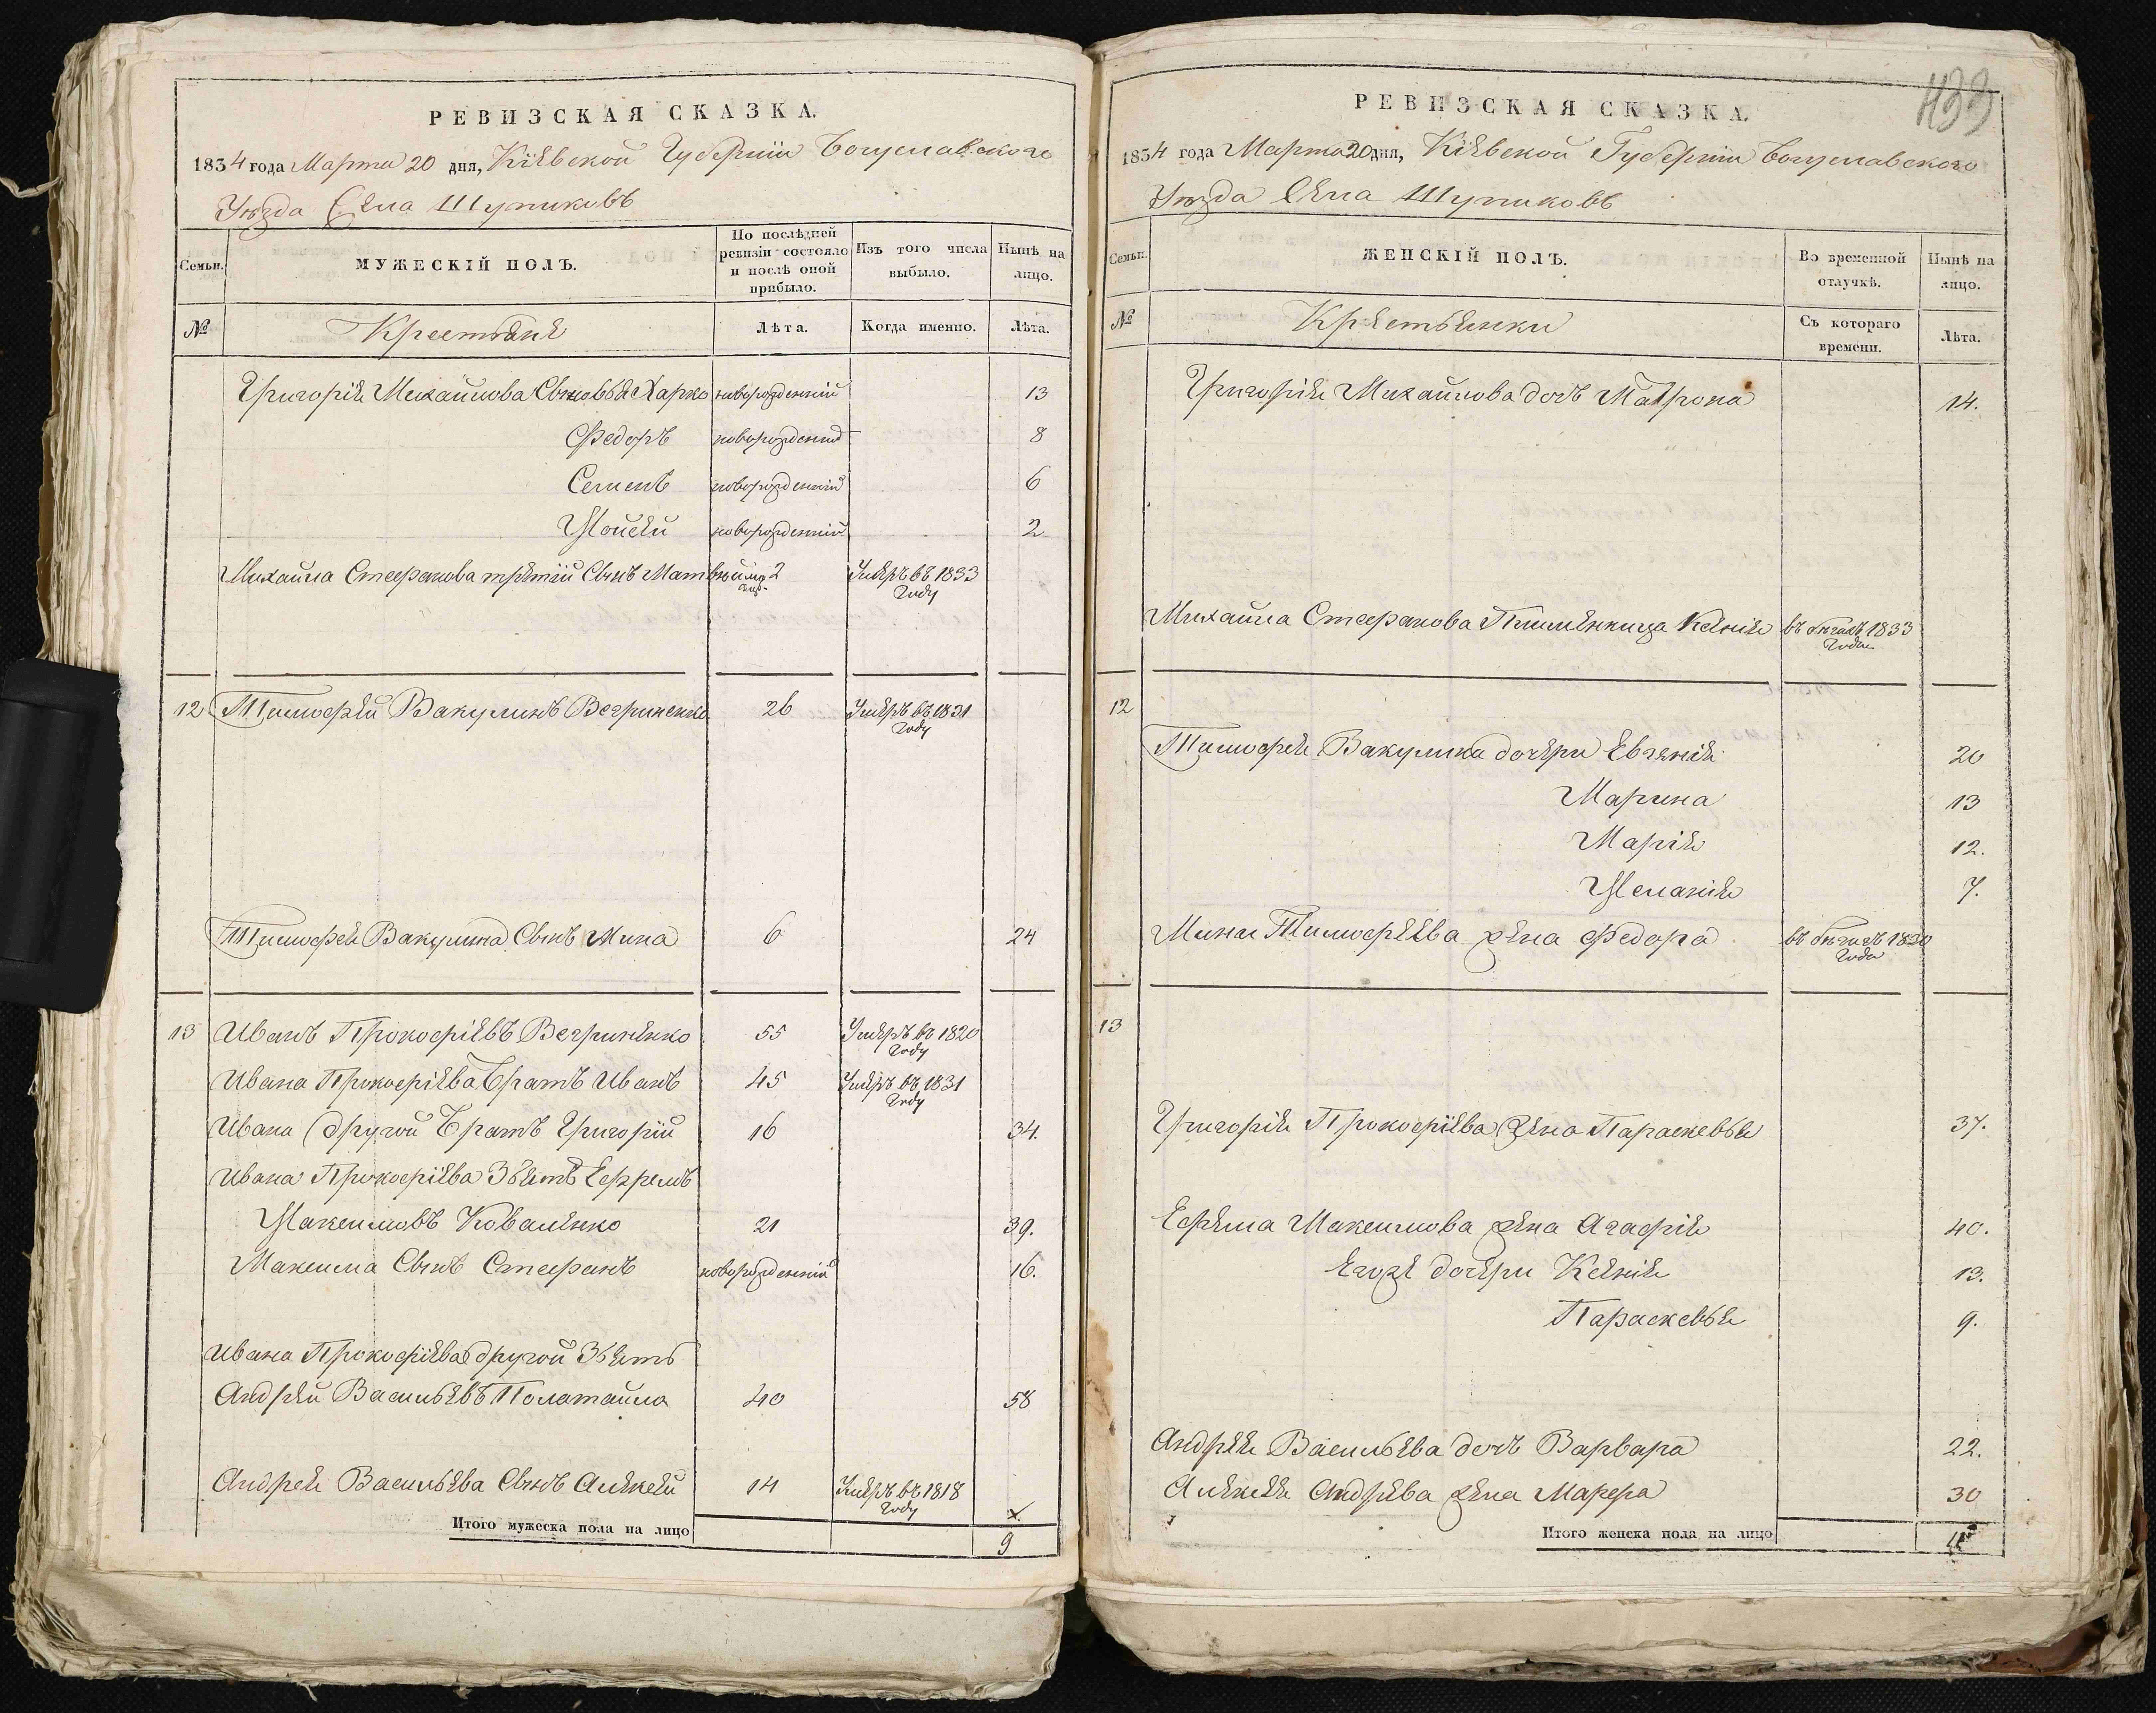 РЕВИЗСКАЯ СКАЗКА.
1834 года Марта 20 дня, Кіевской Губерніи Богуславского
Уѣзда Села Шупиковъ
Семьи.
МУЖЕСКІЙ ПОЛЪ.
По послѣдней ревизіи состояло и послѣ оной прибыло.
Изъ того числа выбыло.
Нынѣ на лицо.
№
Крестьяне
Лѣта.
Когда именно.
Лѣта.
Григорія Михайлова Сыновья Харко новорожденній 13
Федоръ новорожденній 8
Семенъ новорожденній 6
Мойсей новорожденній 2
Михайла Стефанова третій Сынъ Матвѣй 2 Умеръ въ 1833 Году
12 Тимофей Вакулинъ Вегриненко 26 Умеръ въ 1831 Году
Тимофея Вакулина Сынъ Мина 6 24
13 Иванъ Прокофіевъ Вегриненко 55 Умеръ въ 1820 Году
Ивана Прокофіева Братъ Иванъ 45 Умеръ въ 1831 Году
Ивана другой Братъ Григорій 16 34.
Ивана Прокофіева Зьять Ефремъ
Максимовъ Коваленко 21 39.
Максима Сынъ Стефанъ новорожденній 16.
Ивана Прокофіева другой Зьять
Андрей Васильевъ Полатайла 40 58
Андрея Васильева Сынъ Алексей 14 Умеръ въ 1818 Году
Итого мужеска пола на лицо 9
433
РЕВИЗСКАЯ СКАЗКА.
1834 года Марта 20 дня, Кіевской Губерніи Богуславского
Уѣзда Села Шупиковъ
Семьи.
ЖЕНСКІЙ ПОЛЪ.
Во временной отлучкѣ.
Нынѣ на лицо.
№
Крестьянки
Съ котораго времени.
Лѣта.
Григорія Михайлова дочь Матрона 14.
Михайла Стефанова Племенница Ксенія въ бѣгахъ 1833 Года
12
Тимофея Вакулина дочери Евгенія 20
Марина 13
Марія 12.
Меланія 7.
Мины Тимофеева жена Федора въ бѣгахъ 1830 Года
13
Григорія Прокофіева жена Параскевья 37.
Ефрема Максимова жена Агафія 40.
Егоже дочери Ксенія 13.
Параскевья 9.
Андрея Васильева дочь Варвара 22.
Алексея Андрева жена Марфа 30
Итого женска пола на лицо